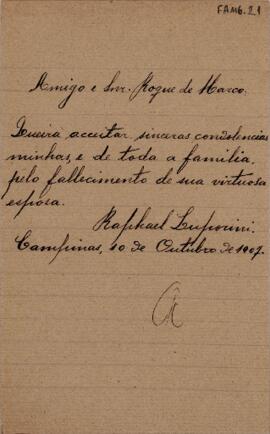 FAMB. 2.1
Amigo e Snr. Roque de Marco.
Queira acceitar sinceras condolencias
minhas, e de toda a familia,
pelo fallecimento de sua virtuosa
esposa.
Raphael Luporini.
Campinas, 10 de Outubro de 1907.